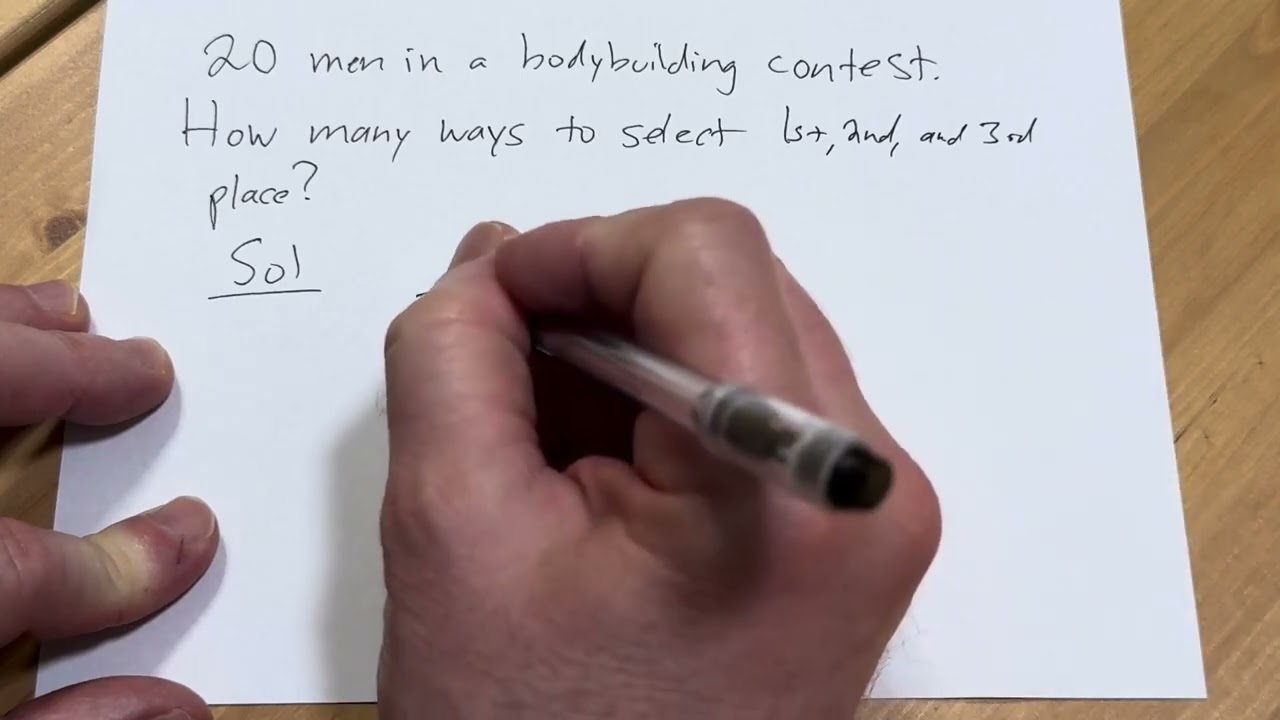 20 men in a bodybuilding contest.
How many ways to select 1st, 2nd, and 3rd
place?
Sol